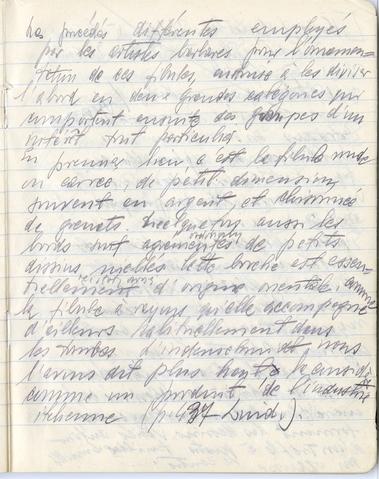 Les procédés différentes employés
par les artistes barbares pour l'ornemen-
tation de ces fibules, autorise à les diviser
d'abord en deux grandes catégories qui
comportent ensuite des groupes d'un
intérêt tout particulier.
En premier lieu c'est la fibule ronde
ou carrée, de petite dimension,
souvent en argent et cloisonnée
de grenats. Quelquefois aussi les
bords sont agrementés de petits
dessins, niellés cette broche est essen-
tiellement d'origine orientale comme
la fibule à rayons qu'elle accompagne
d'ailleurs habituellement dans
les tombes d'
l'avons dit plus haut à considérer
comme un produit de l'industrie
italienne (p. 437 Lund.).